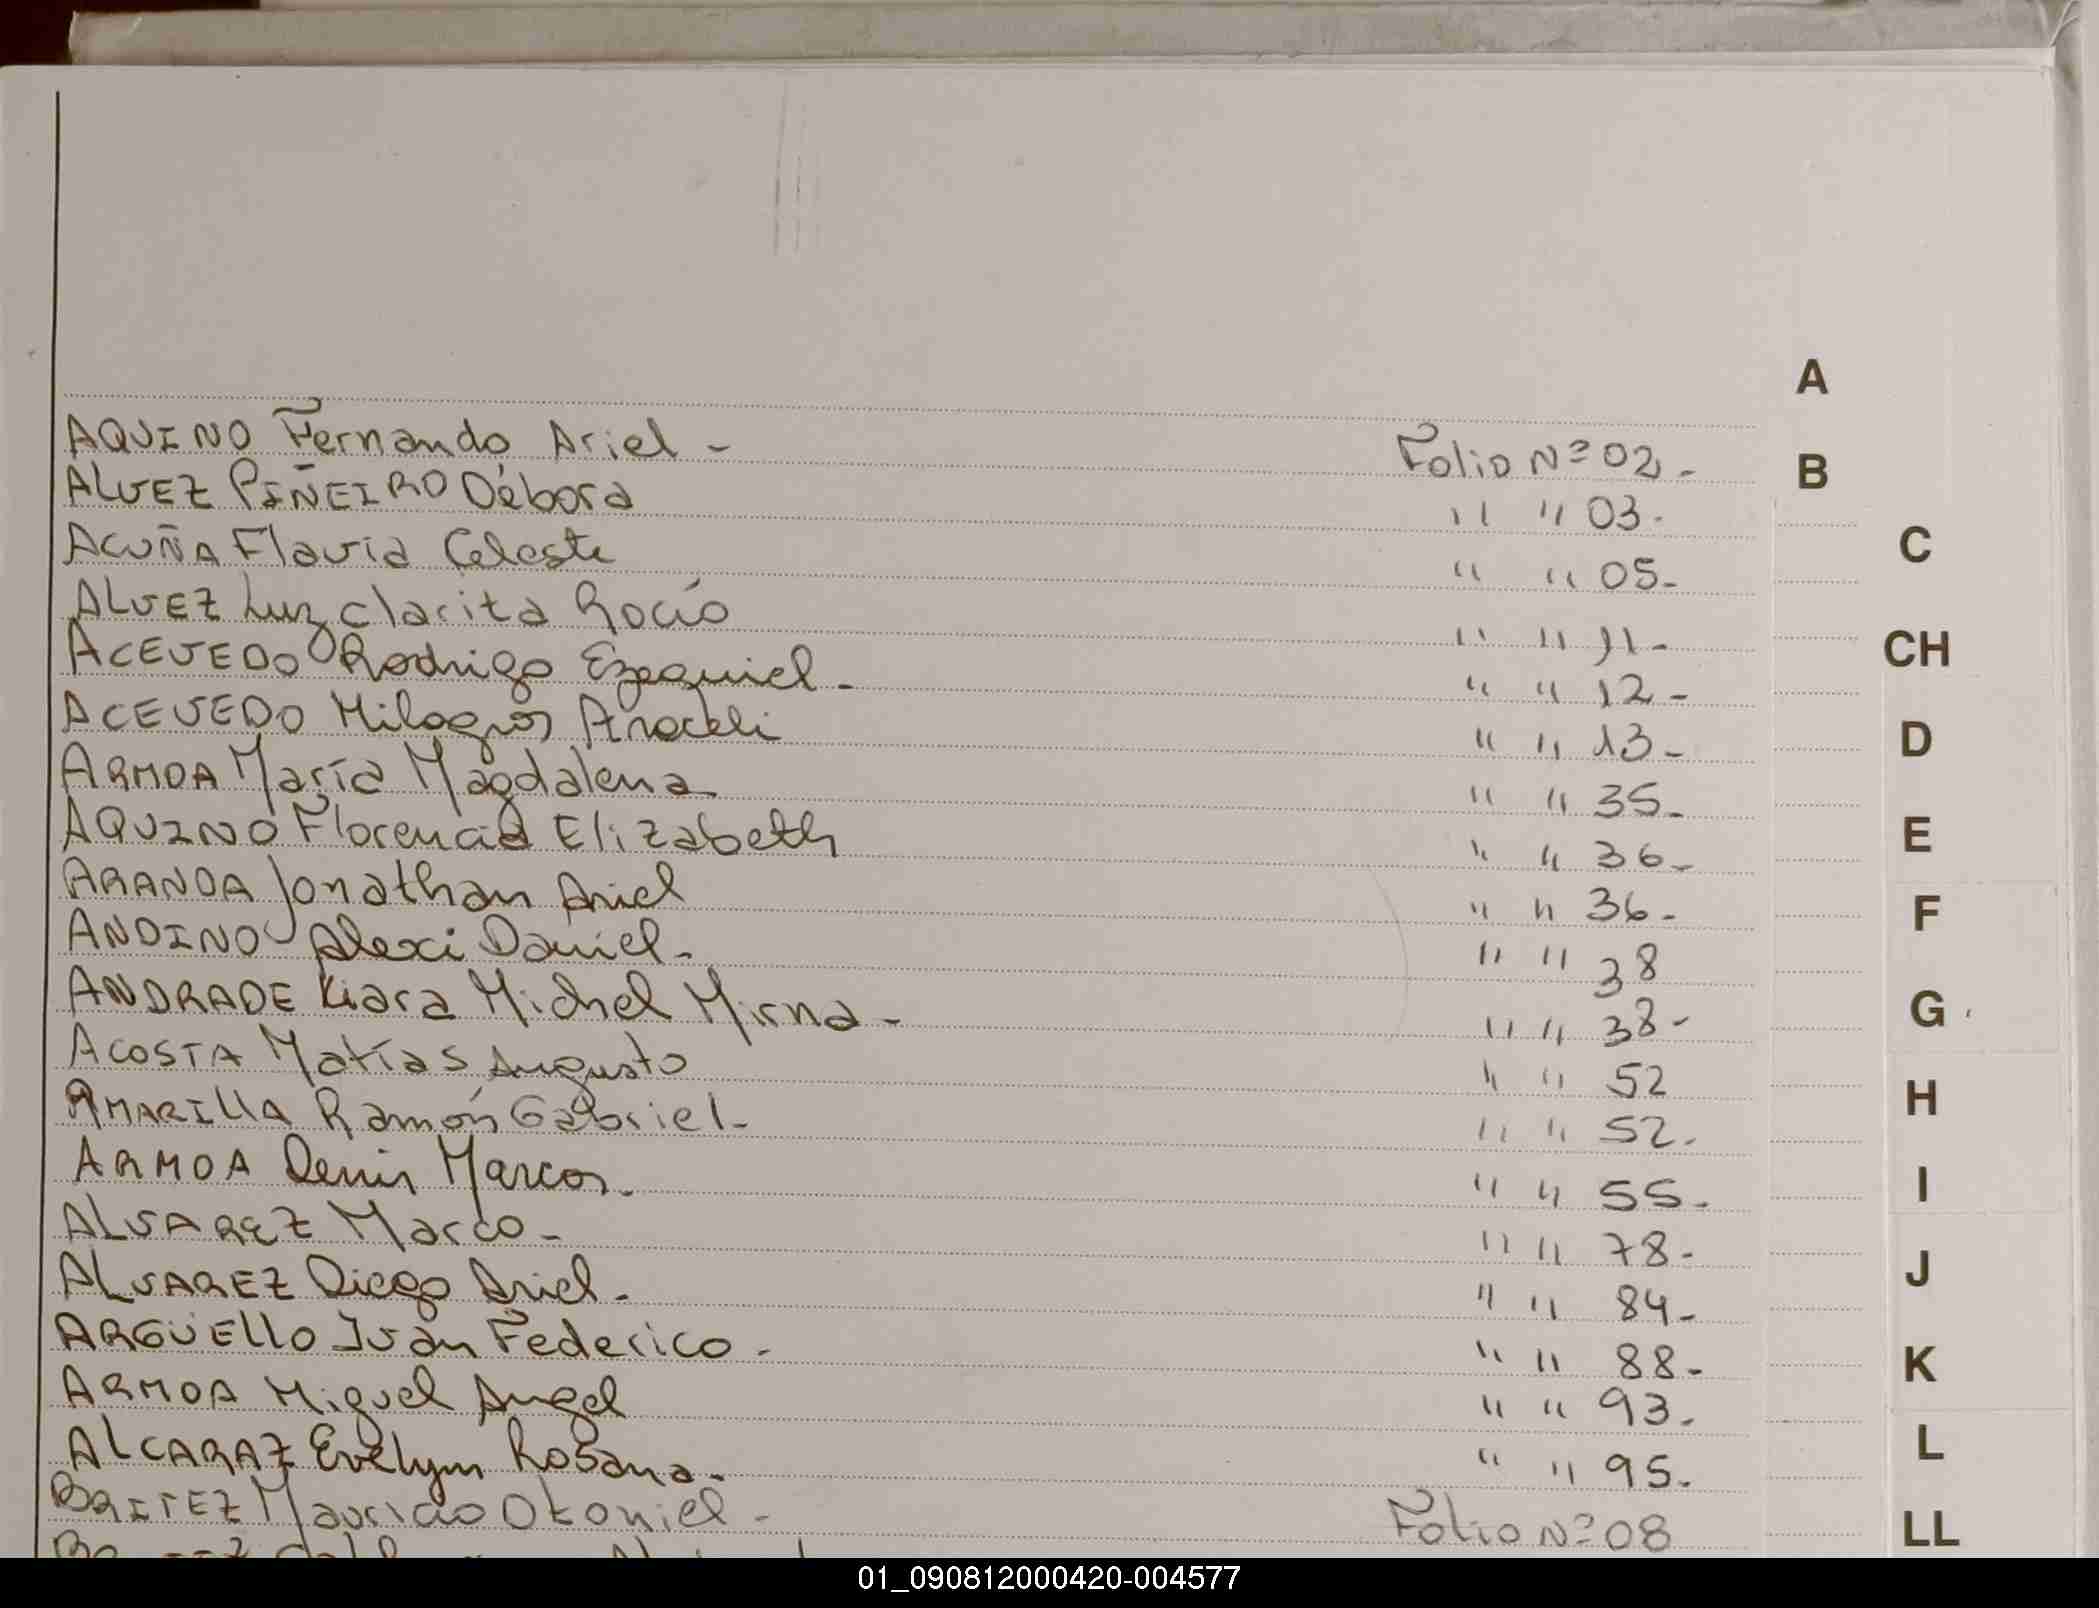 A
AQUINO Fernando Ariel - Folio Nº 02 -
B
ALVEZ PIÑEIRO Débora " " 03 -
ACUÑA Flavia Celeste " " 05 -
C
ALVEZ Luz clarita Rocío " " 11 -
ACEVEDO Rodrigo Ezequiel - " " 12 -
CH
ACEVEDO Milagros Araceli " " 13 -
D
ARMOA María Magdalena " " 35 -
AQUINO Florencia Elizabeth " " 36 -
E
ARANDA Jonathan Ariel " " 36 -
F
ANDINO Alexi Daniel - " " 38
ANDRADE Kiara Michel Mirna - " " 38 -
G
ACOSTA Matías Augusto " " 52
H
AMARILLA Ramón Gabriel - " " 52 -
ARMOA Denis Marcos - " " 55 -
I
ALVAREZ Marco - " " 78 -
J
ALVAREZ Diego Ariel - " " 84 -
ARGÜELLO Iván Federico - " " 88 -
K
ARMOA Miguel Angel " " 93 -
ALCARAZ Evelym Rosana - " " 95 -
L
BRITEZ Mauricio Otoniel - Folio Nº 08
LL
01_090812000420-004577